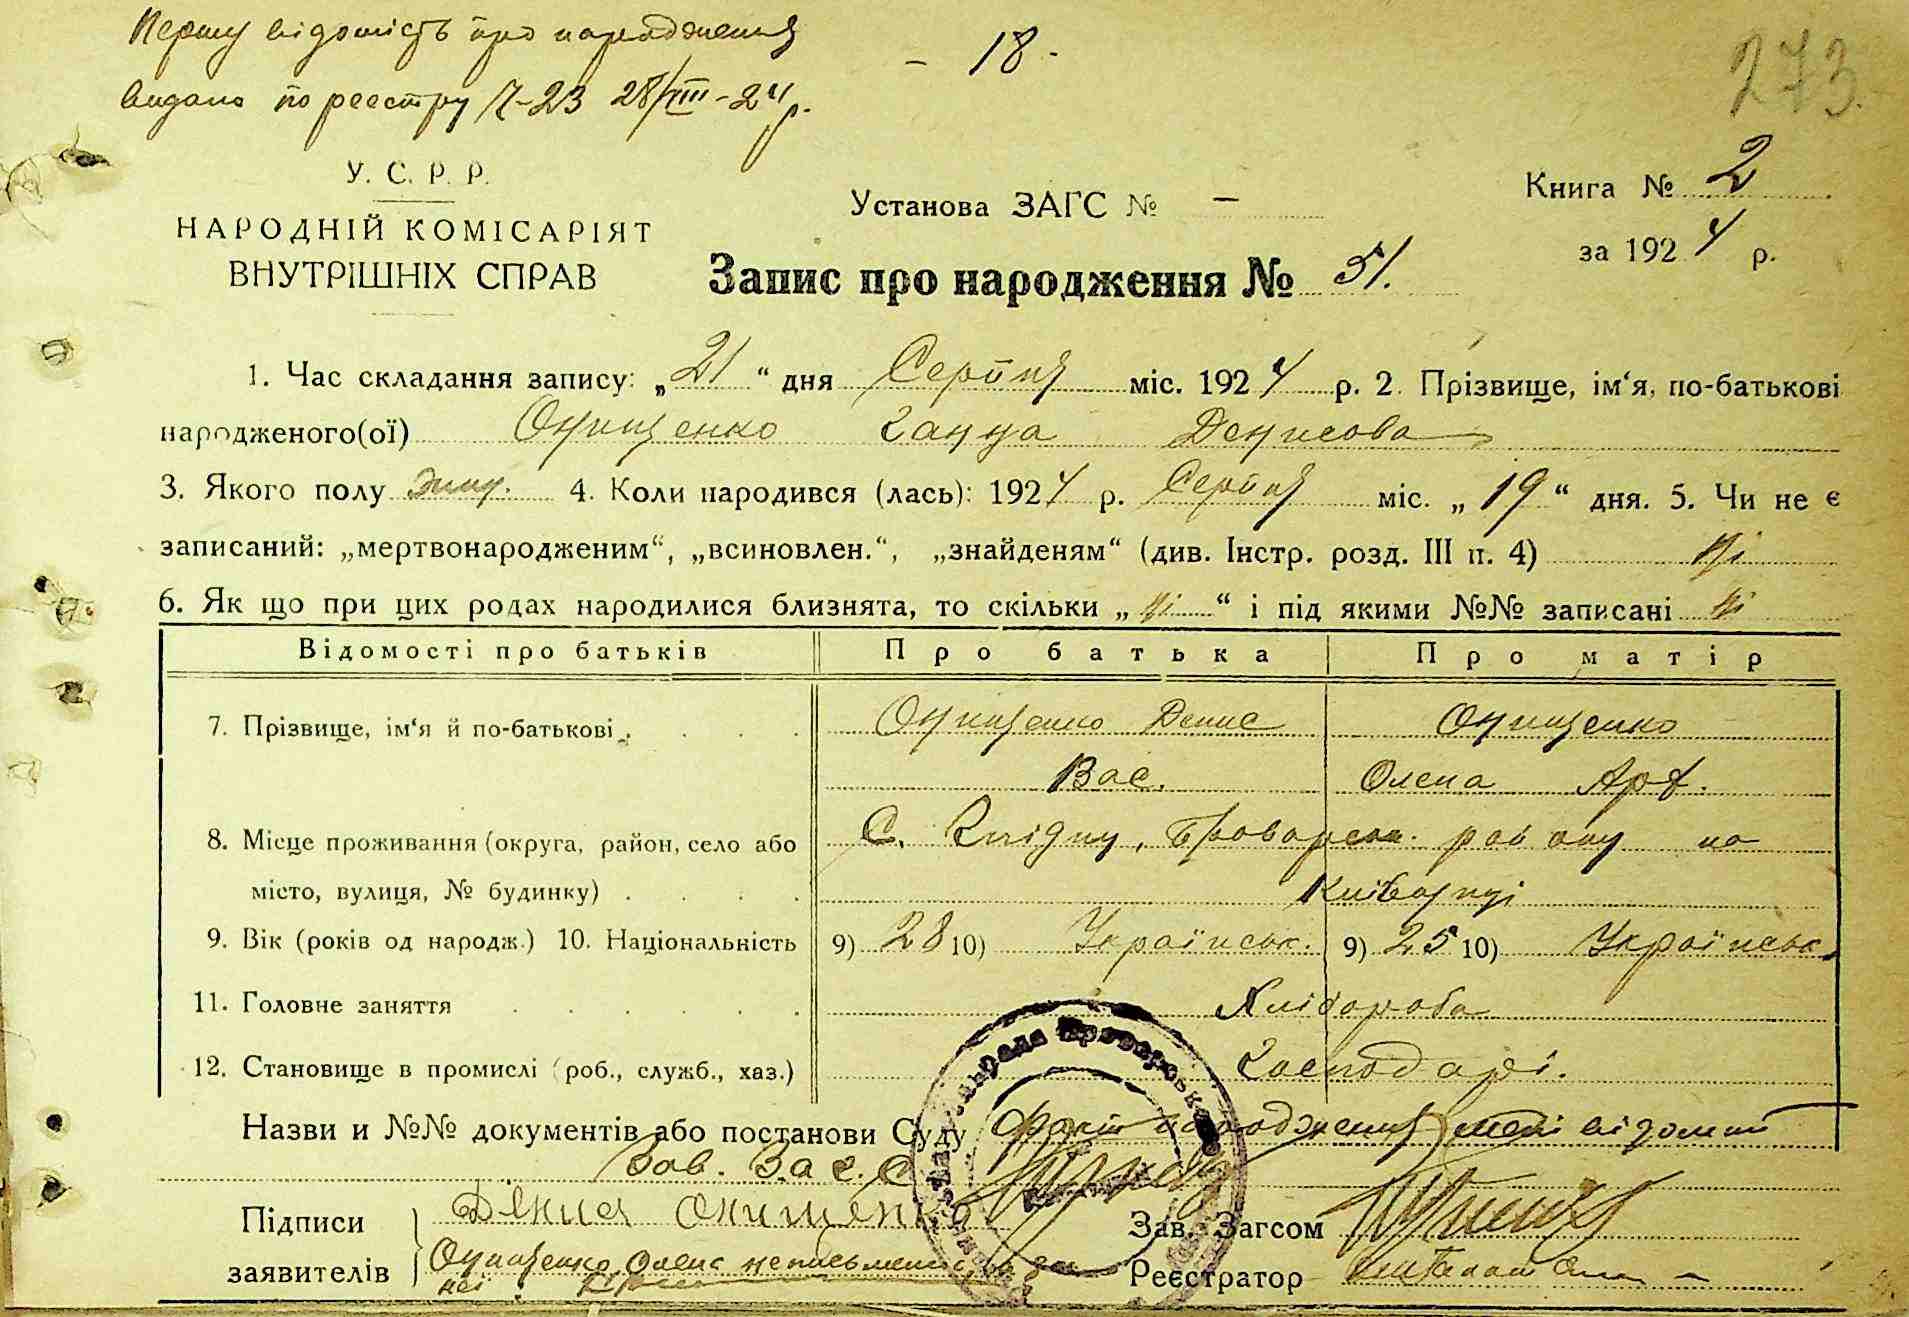 Першу відомість про народження
видано по реєстру 28/VIII-24 р.
- 18 -
273.
У. С. Р. Р.
НАРОДНІЙ КОМІСАРІЯТ
ВНУТРІШНІХ СПРАВ
Установа ЗАГС № -
Книга № 2
за 1924 р.
Запис про народження № 51.
1. Час складання запису: „21“ дня Серпня міс. 1924 р. 2. Прізвище, ім‘я, по-батькові
народженого(ої) Онищенко Ганна Денисова
3. Якого полу 4. Коли народився (лась): 1924 р. Серпня міс. „19“ дня. 5. Чи не є
записаний: „мертвонародженим“, „всиновлен.“, „знайденям“ (див. Інстр. розд. III п. 4) ні
6. Як що при цих родах народилися близнята, то скільки „ні“ і під якими №№ записані ні
Відомості про батьків Про батька Про матір
7. Прізвище, ім‘я й по-батькові . . . . Онищенко Денис Онищенко
Вас. Олена Арт.
8. Місце проживання (округа, район, село або С. району на
місто, вулиця, № будинку) . . . . Київщині
9. Вік (років од народж.) 10. Національність 9) 28 10) Українськ. 9) 25 10) Українськ.
11. Головне заняття . . . . . . Хлібороба
12. Становище в промислі (роб., служб., хаз.) Господарі.
Назви и №№ документів або постанови Суду Факт народження мені відомий
Зав. Загс.
Підписи Онищенко Зав. Загсом
заявителів Онищенко Олена неписьменна, за Реєстратор
неї